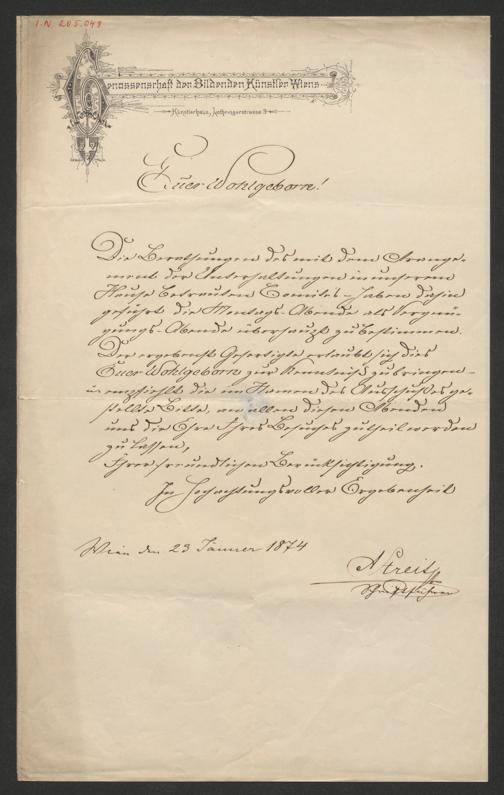 I.N. 205.048
Genossenschaft der Bildenden Künstler Wiens
Künstlerhaus, Lothringerstrasse 9
Euer Wohlgeborn!
Die Berathungen des mit dem Arrange-
ment der Unterhaltungen in unserem
Hause betrauten Comités – haben dahin
geführt die Montags-Abende als Vergnü-
gungs-Abende überhaupt zu bestimmen.
Der ergebenst Gefertigte erlaubt sich dies
Euer Wohlgeborn zur Kenntniß zu bringen –
u. empfiehlt die im Namen des Ausschußes ge-
stellte Bitte, an allen diesen Abenden
uns die Ehre Ihres Besuches zutheil werden
zu lassen,
Ihrer freundlichen Berücksichtigung.
In hochachtungsvoller Ergebenheit
Wien den 23 Jänner 1874
A Streit
Schriftführer